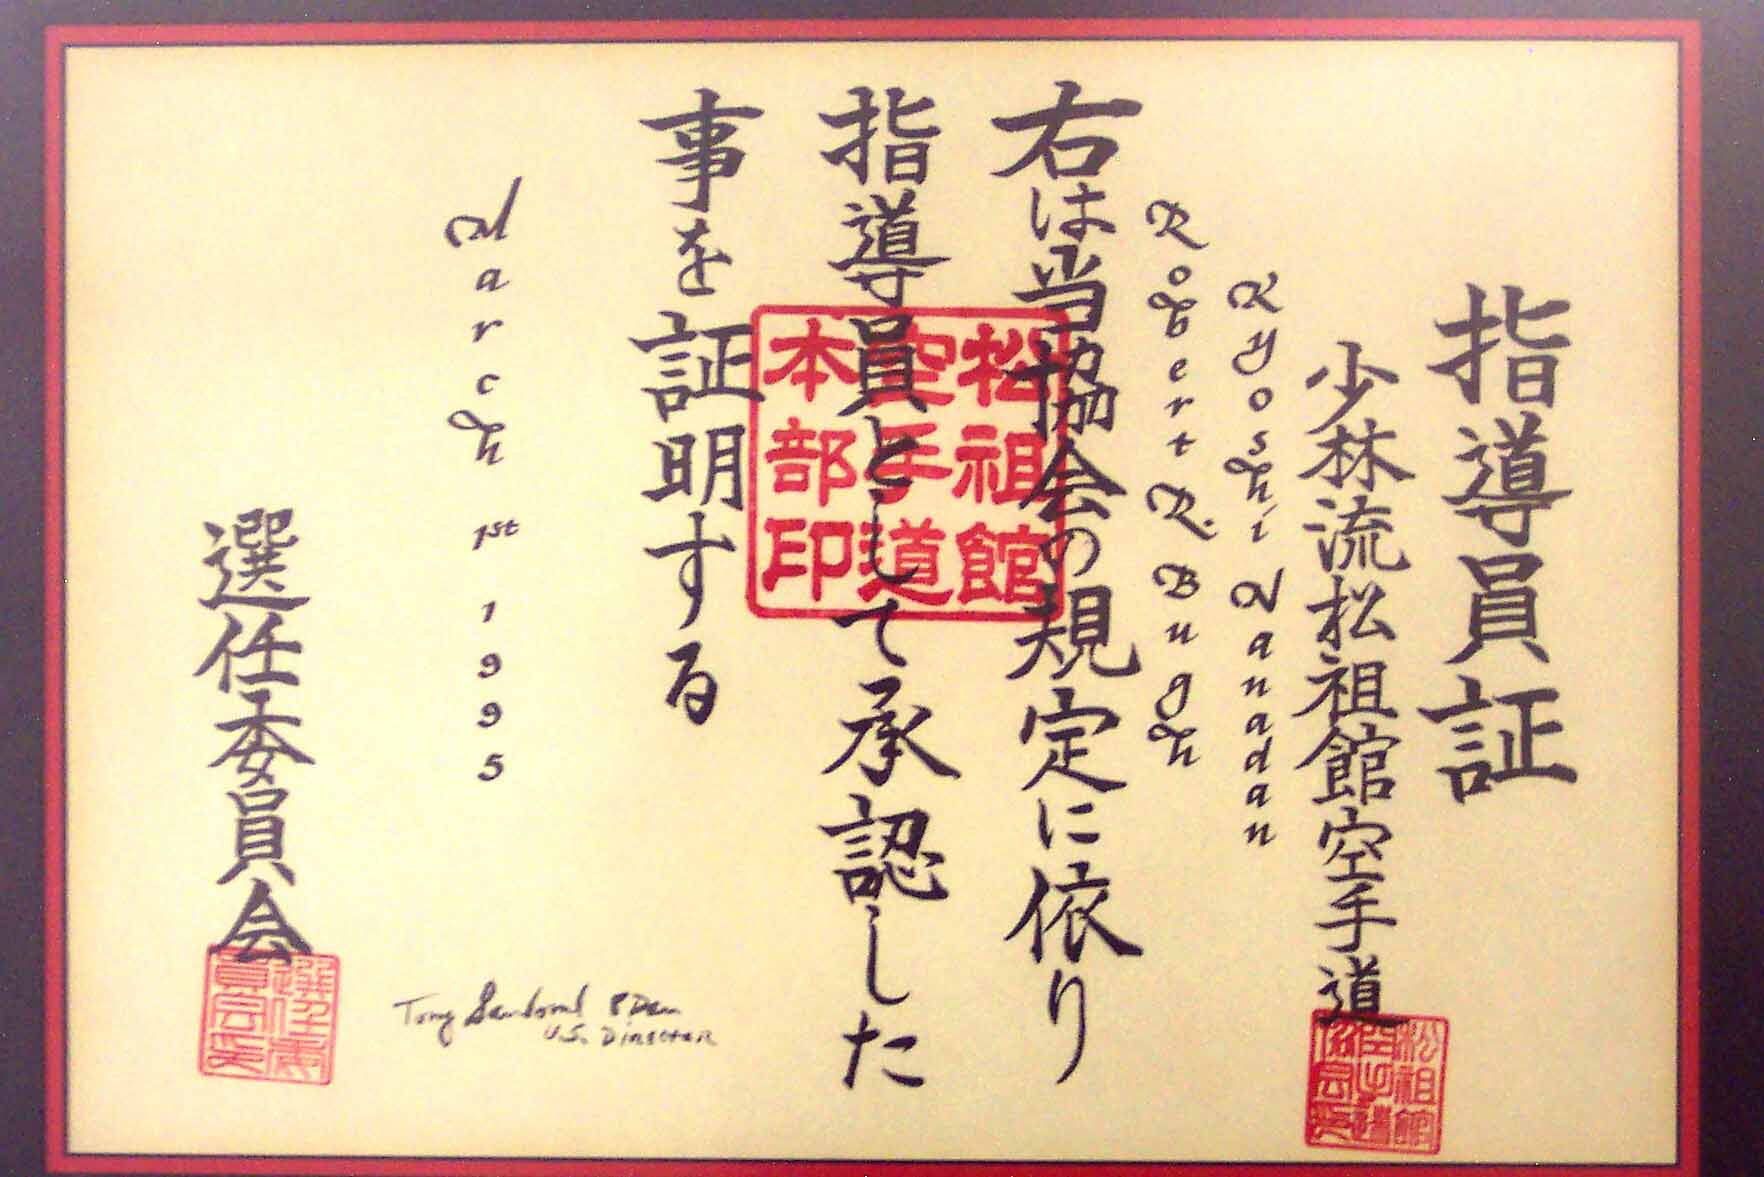 指導員証
少林流松祖館空手道
Kyoshi Nanadan
Robert R. Bugh
右は当協会の規定に依り
指導員として承認した
事を証明する
March 1st 1995
選任委員会
松祖館
空手道
本部印
Tony Sandoval 8 Dan
U.S. Director
選任委
員会印